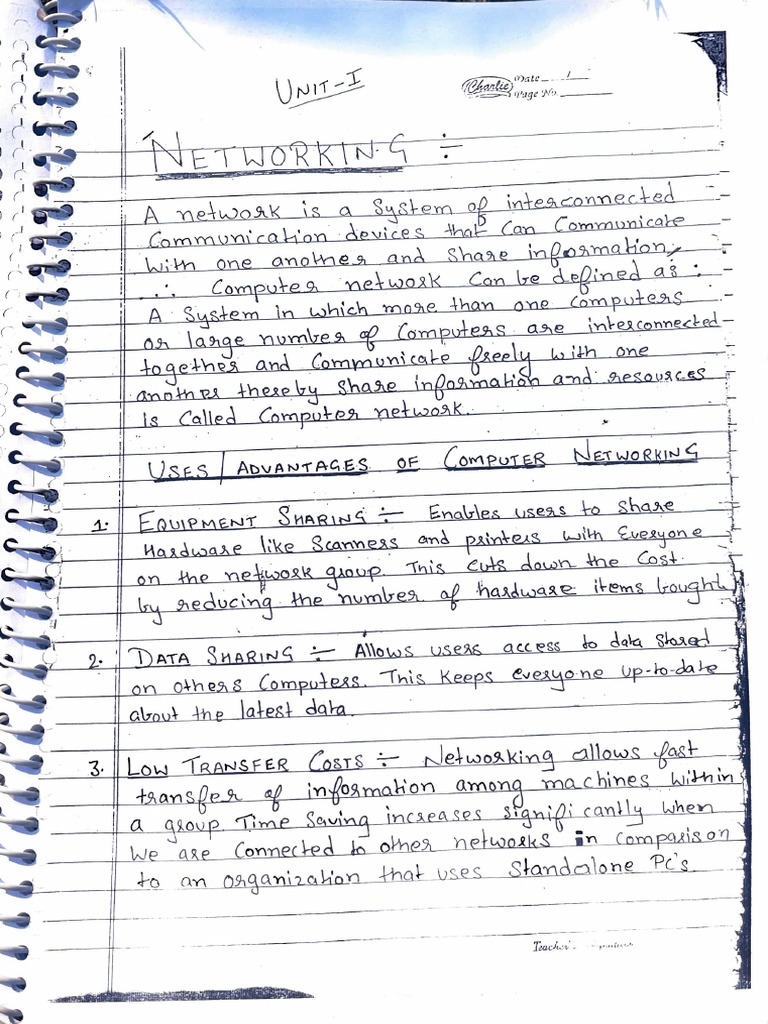 UNIT-I
Charlie Date 1
Page No.
NETWORKING ÷
A network is a System of interconnected
Communication devices that Can Communicate
With one another and Share information,
∴ Computer network Can be defined as :
A System in which more than one Computers
or large number of Computers are interconnected
together and Communicate freely with one
another thereby Share information and resources
is Called Computer network.
USES / ADVANTAGES OF COMPUTER NETWORKING
1. EQUIPMENT SHARING ÷ Enables users to Share
Hardware like Scanners and printers with Everyone
on the network group. This Cuts down the Cost.
by reducing the number of hardware items bought
2. DATA SHARING ÷ Allows users access to data Stored
on others Computers. This Keeps everyone up-to-date
about the latest data.
3. LOW TRANSFER COSTS ÷ Networking allows fast
transfer of information among machines Within
a group. Time Saving increases significantly when
We are Connected to other networks in comparison
to an organization that uses Standalone PC's